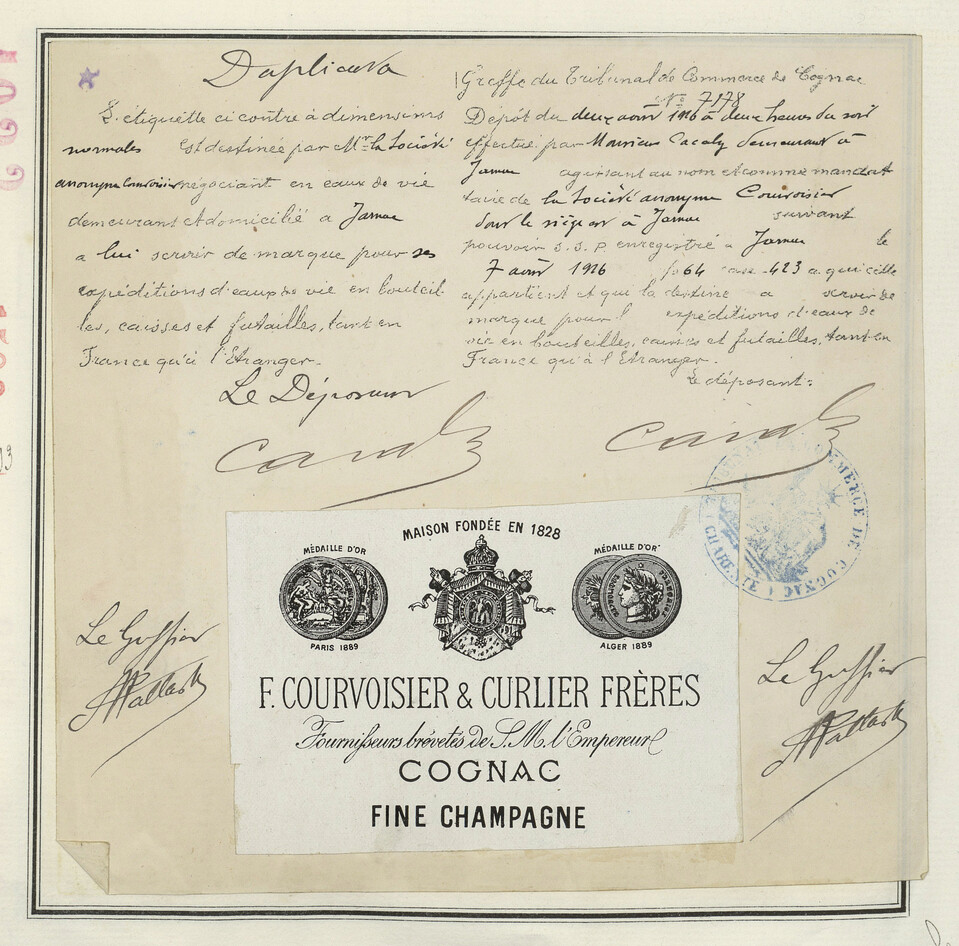 Duplicata
L'étiquette ci contre à dimensions
normales est destinée par Mr la Société
anonyme Courvoisier négociant en eaux de vie
demeurant et domicilié a Jarnac
a lui servir de marque pour ses
expéditions d'eaux de vie en bouteil
les, caisses et futailles, tant en
France qu'à l'Etranger.
Le Déposant
Greffe du Tribunal de Commerce de Cognac
No 7178
Dépôt du deux août 1926 à deux heures du soir
effectué par Monsieur demeurant à
Jarnac agissant au nom et comme manda
taire de la Société anonyme Courvoisier
dont le siège est à Jarnac suivant
pouvoir s.s.p enregistré a Jarnac le
7 août 1926 fo 64 case 423 a qui elle
appartient et qui la destine a servir de
marque pour l expéditions d'eaux de
vie en bouteilles, caisses et futailles, tant en
France qu'à l'Etranger.
Le déposant:
TRIBUNAL DE COMMERCE DE COGNAC
(CHARENTE)
MAISON FONDÉE EN 1828
MÉDAILLE D'OR
PARIS 1889
MÉDAILLE D'OR
ALGER 1889
F. COURVOISIER & CURLIER FRÈRES
Fournisseurs brévetés de S. M. l'Empereur
COGNAC
FINE CHAMPAGNE
Le Greffier
Le Greffier